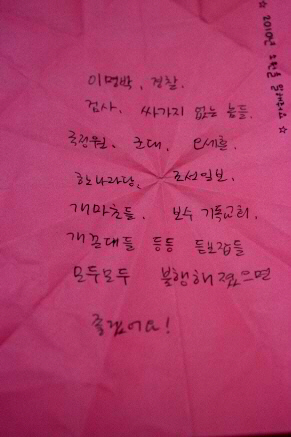 ☆ 2010년 소원을 말해줘요 ☆
이명박, 경찰.
검사. 싸가지 없는 놈들.
국정원. 군대. 오세훈.
한나라당, 조선일보,
개마초들, 보수 기독교회,
개꼰대들 등등 듣보잡들
모두모두 불행해졌으면
좋겠어요!